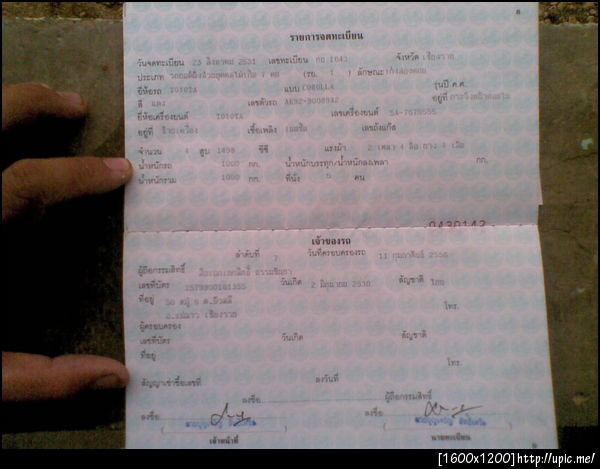 8
รายการจดทะเบียน
วันจดทะเบียน 23 สิงหาคม 2531 เลขทะเบียน กข 1643 จังหวัด เชียงราย
ประเภท รถยนต์นั่งส่วนบุคคลไม่เกิน 7 คน (รย. 1 ) ลักษณะ เก๋งสองตอน
ยี่ห้อรถ TOYOTA แบบ COROLLA รุ่นปี ค.ศ.
สี แดง เลขตัวรถ AE92-3008942 อยู่ที่
ยี่ห้อเครื่องยนต์ TOYOTA เลขเครื่องยนต์ 5A-7575555
อยู่ที่ เชื้อเพลิง เบนซิน เลขถังแก๊ส
จำนวน 4 สูบ 1498 ซีซี แรงม้า 2 เพลา 4 ล้อ ยาง 4 เส้น
น้ำหนักรถ 1000 กก. น้ำหนักบรรทุก/น้ำหนักลงเพลา กก.
น้ำหนักรวม 1000 กก. ที่นั่ง 5 คน
0430142
เจ้าของรถ
ลำดับที่ 7 วันที่ครอบครองรถ 11 กุมภาพันธ์ 2556
ผู้ถือกรรมสิทธิ์
เลขที่บัตร 1579900161355 วันเกิด 2 มิถุนายน 2530 สัญชาติ ไทย
ที่อยู่ 50 หมู่ 8 โทร.
เชียงราย
ผู้ครอบครอง
เลขที่บัตร วันเกิด สัญชาติ
ที่อยู่ โทร.
สัญญาเช่าซื้อเลขที่ ลงวันที่
ลงชื่อ ผู้ถือกรรมสิทธิ์
ลงชื่อ ลงชื่อ
เจ้าหน้าที่ นายทะเบียน
[1600x1200]http://upic.me/